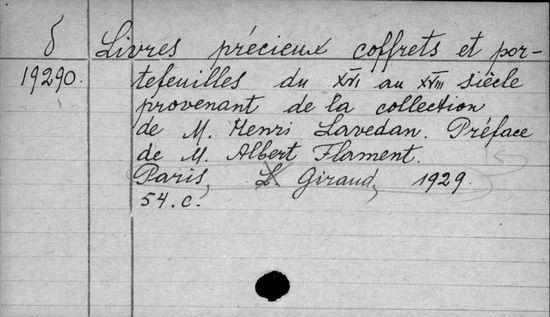 δ Livres précieux coffrets et por-
19290. tefeuilles du XVI au XVIII siècle
provenant de la collection
de M. Henri Lavedan. Préface
de M. Albert Flament.
Paris, L. Giraud, 1929.
54. c.